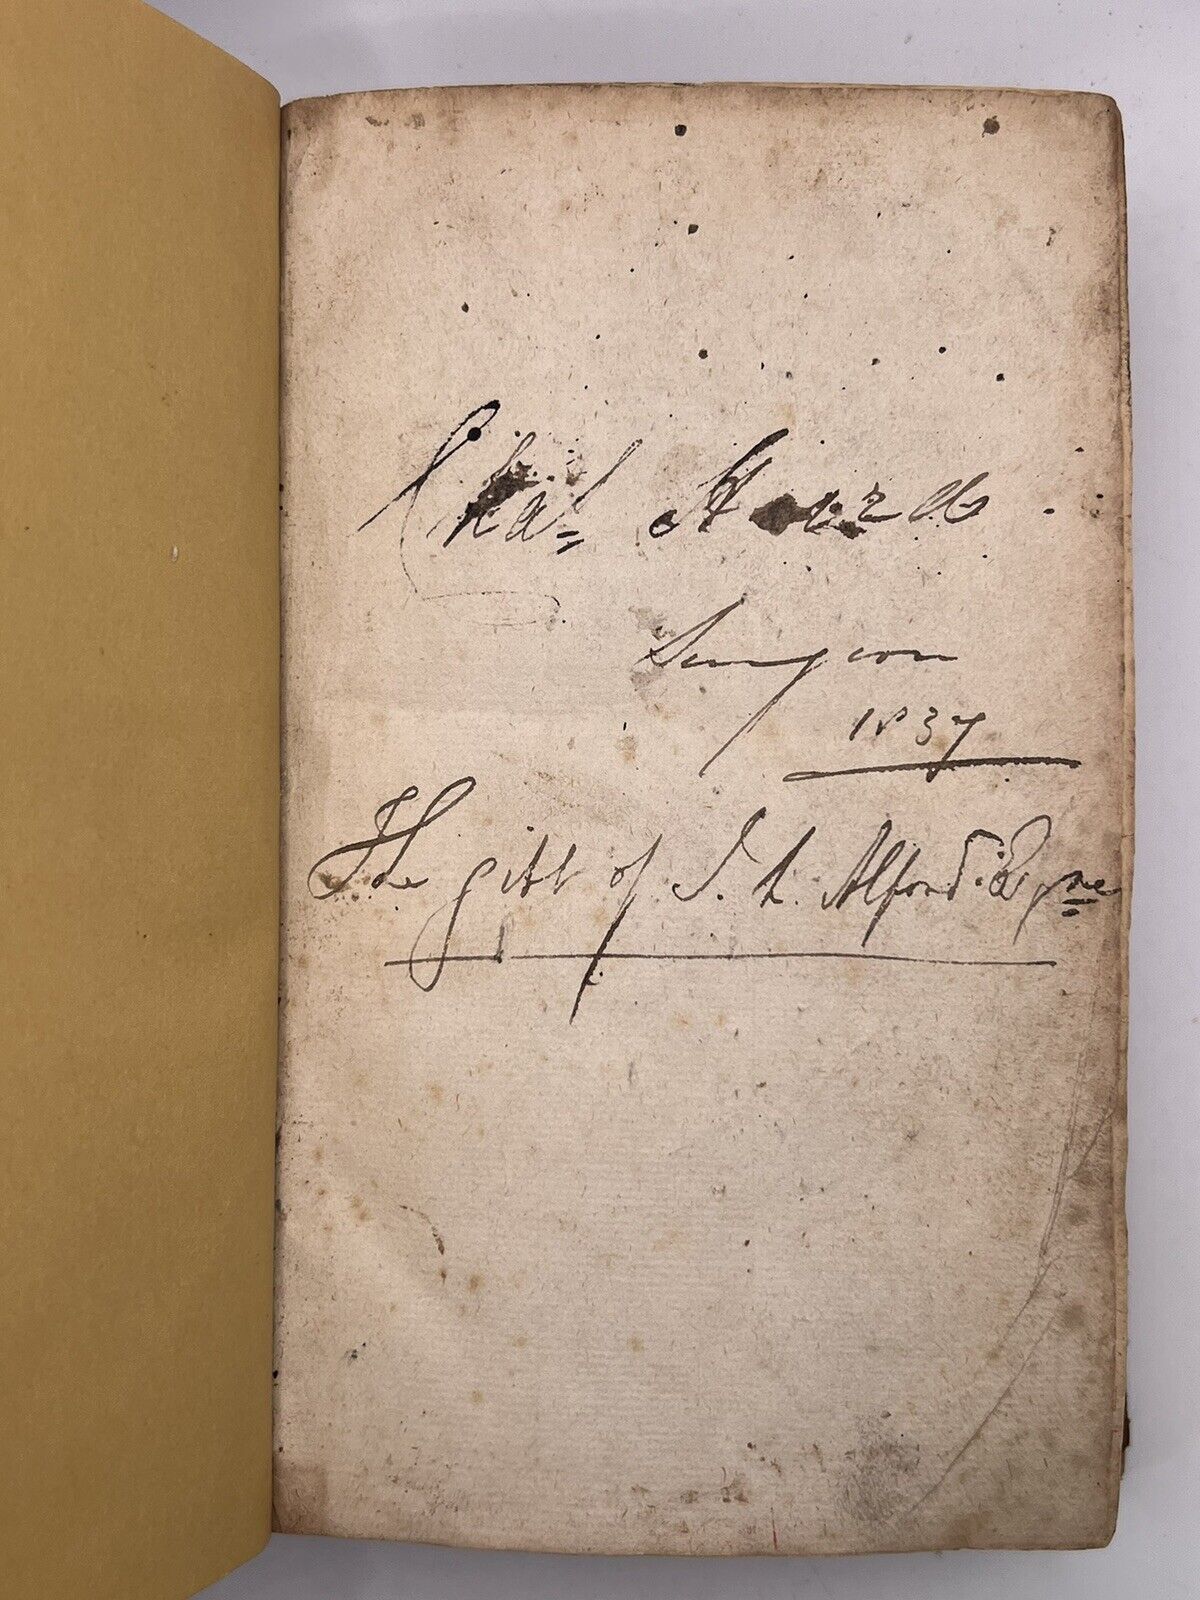 Chas
Surgeon
1837
The gift of S. A. Alford Esqre